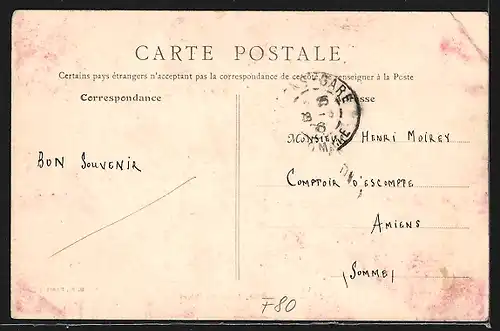 CARTE POSTALE
Certains pays étrangers n'acceptant pas la correspondance de ce côté, se renseigner à la Poste
Correspondance
GARE
BON SOUVENIR
MONSIEUR HENRI MOIREY
COMPTOIR D'ESCOMPTE
AMIENS
(SOMME)
F80